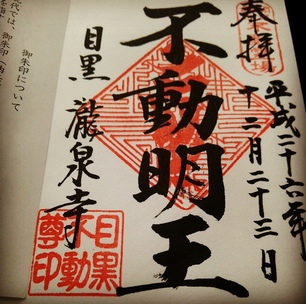 奉拝
平成二十六年
十二月二十三日
不動明王
目黒 瀧泉寺
目黒
不動
尊印
御朱印について
代では、